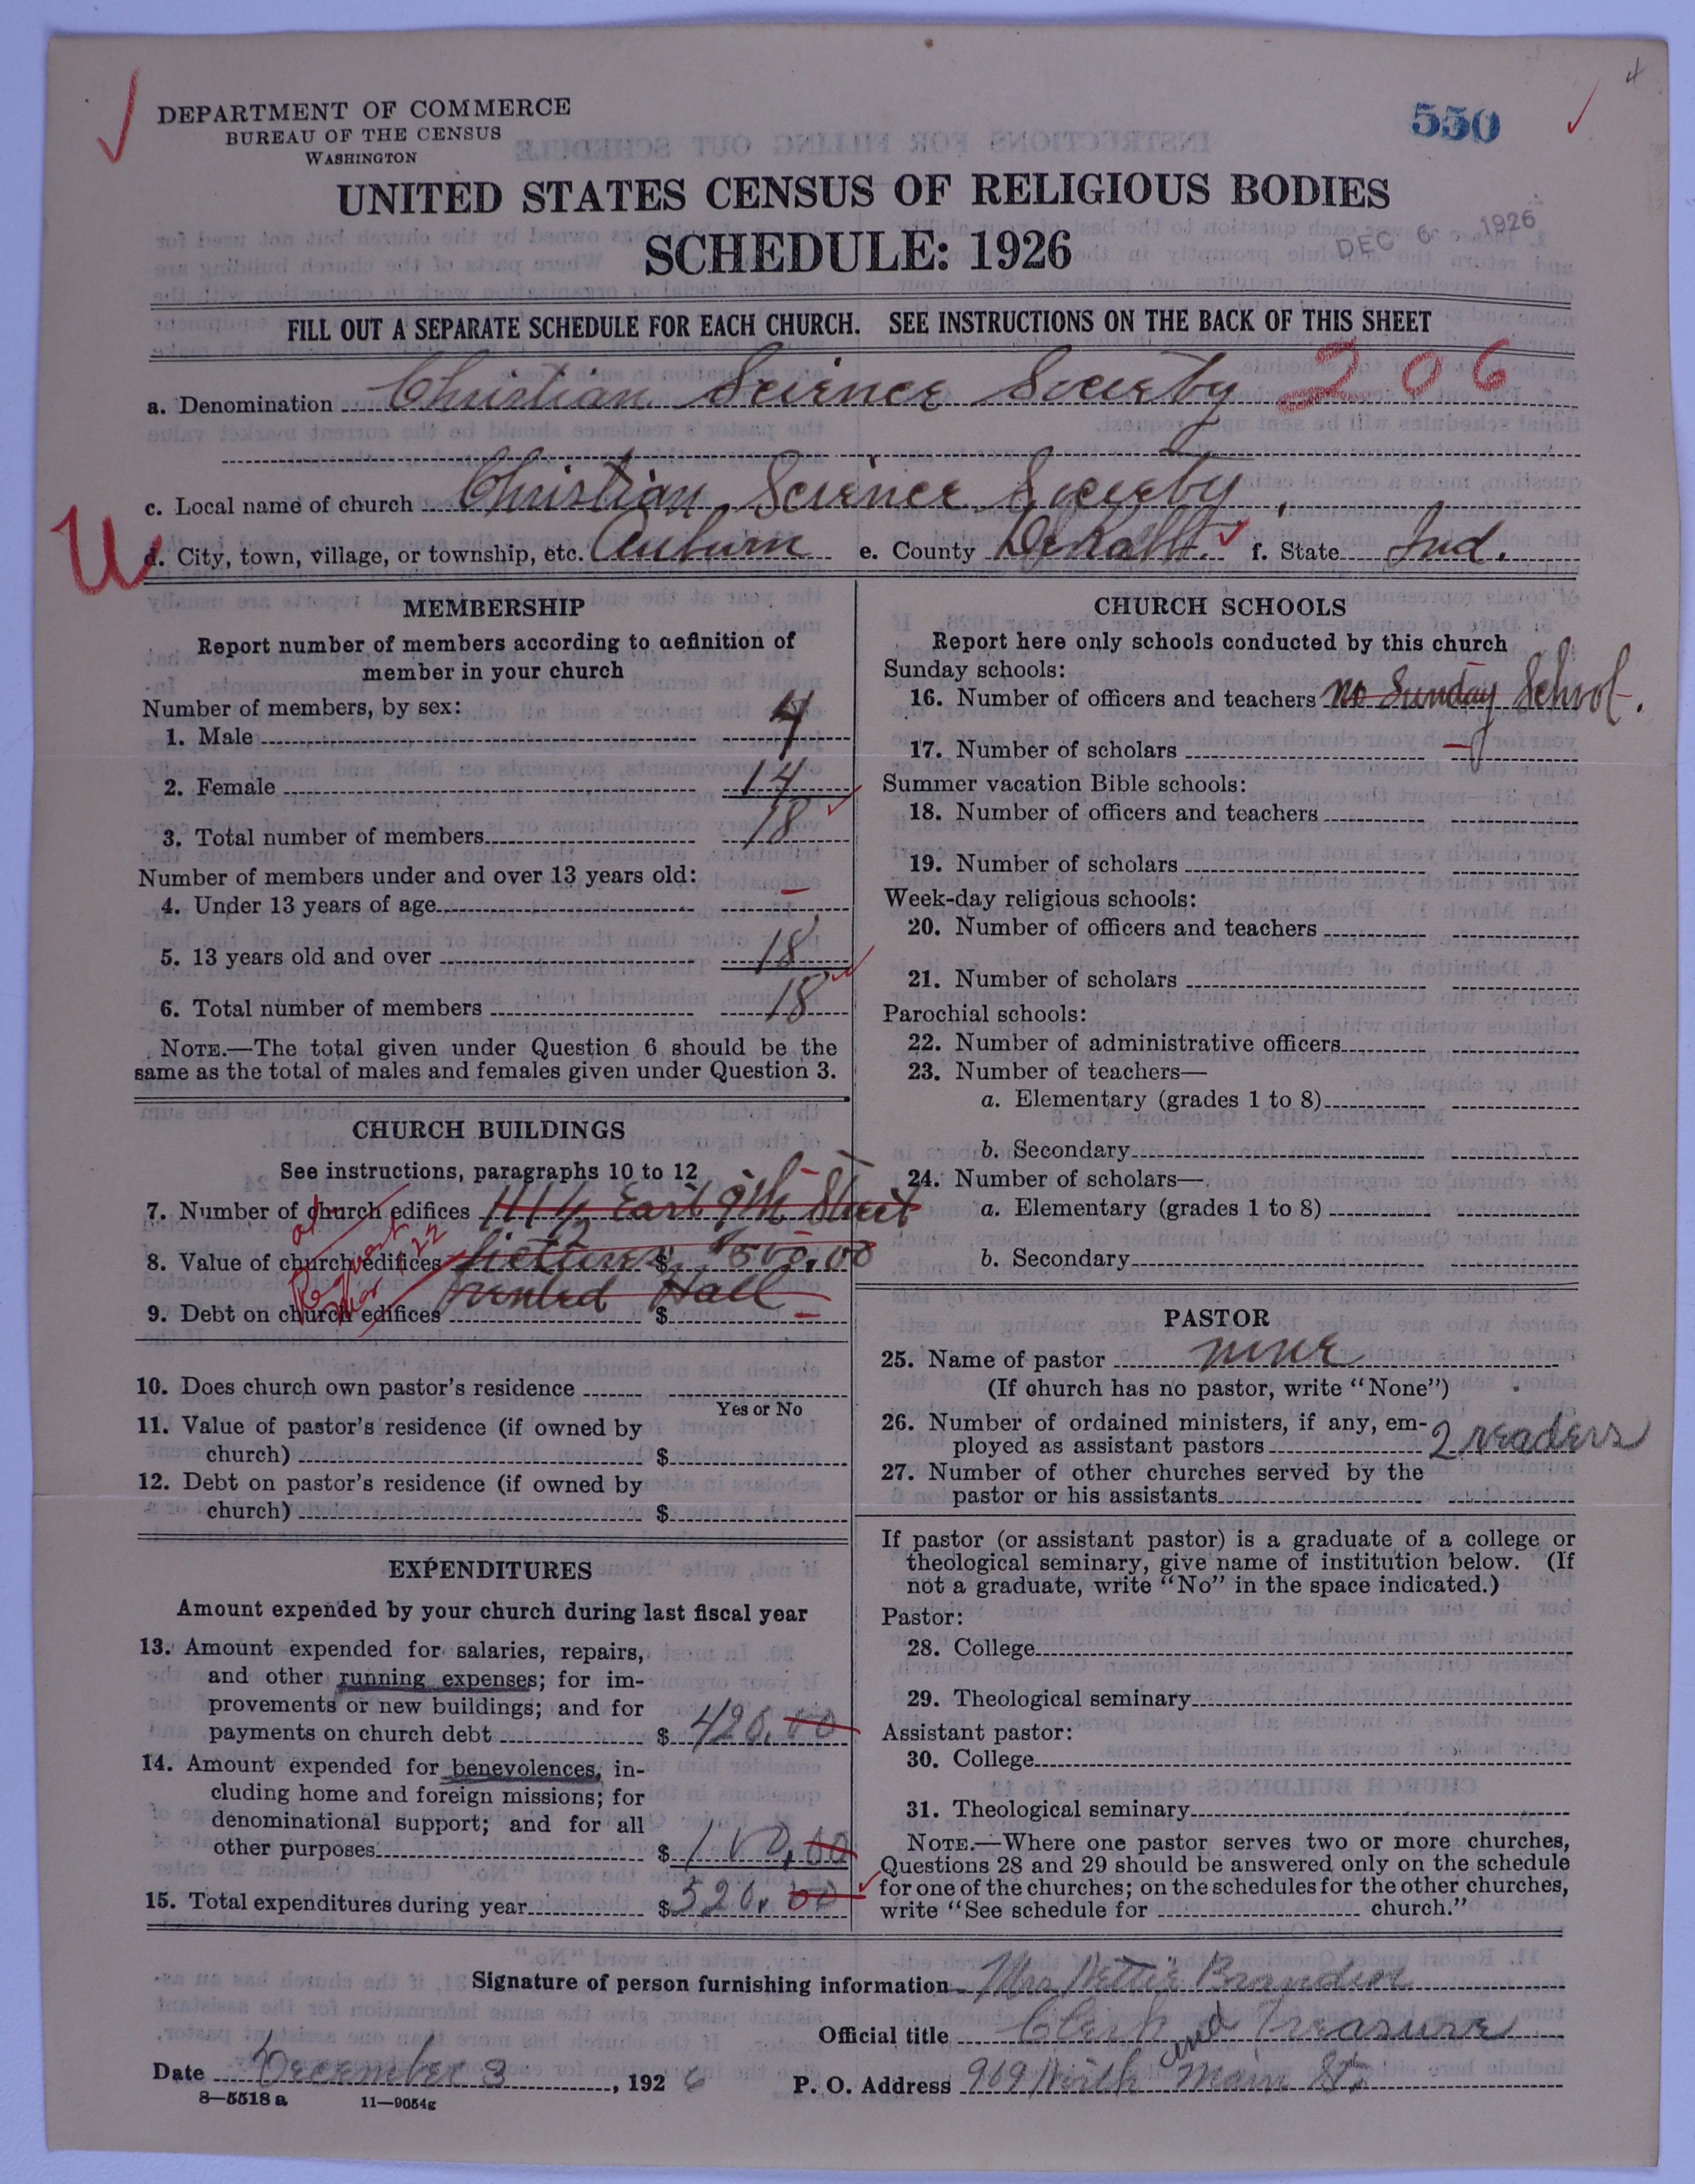 4
DEPARTMENT OF COMMERCE
BUREAU OF THE CENSUS
WASHINGTON
550
UNITED STATES CENSUS OF RELIGIOUS BODIES
SCHEDULE: 1926
DEC 6 1926
FILL OUT A SEPARATE SCHEDULE FOR EACH CHURCH. SEE INSTRUCTIONS ON THE BACK OF THIS SHEET
a. Denomination Christian Science Society 206
c. Local name of church Christian Science Society
U
d. City, town, village, or township, etc. Auburn e. County DeKalb f. State Ind.
MEMBERSHIP
Report number of members according to definition of
member in your church
Number of members, by sex:
1. Male 4
2. Female 14
3. Total number of members 18
Number of members under and over 13 years old:
4. Under 13 years of age —
5. 13 years old and over 18
6. Total number of members 18
NOTE.—The total given under Question 6 should be the
same as the total of males and females given under Question 3.
CHURCH BUILDINGS
See instructions, paragraphs 10 to 12
7. Number of church edifices 111½ East 9th Street
8. Value of church edifices $ 500.00
9. Debt on church edifices rented Hall $ —
10. Does church own pastor's residence
Yes or No
11. Value of pastor's residence (if owned by
church) $
12. Debt on pastor's residence (if owned by
church) $
EXPENDITURES
Amount expended by your church during last fiscal year
13. Amount expended for salaries, repairs,
and other running expenses; for im-
provements or new buildings; and for
payments on church debt $ 420.00
14. Amount expended for benevolences, in-
cluding home and foreign missions; for
denominational support; and for all
other purposes $ 100.00
15. Total expenditures during year $ 520.00
CHURCH SCHOOLS
Report here only schools conducted by this church
Sunday schools:
16. Number of officers and teachers no Sunday School.
17. Number of scholars —
Summer vacation Bible schools:
18. Number of officers and teachers
19. Number of scholars
Week-day religious schools:
20. Number of officers and teachers
21. Number of scholars
Parochial schools:
22. Number of administrative officers
23. Number of teachers—
a. Elementary (grades 1 to 8)
b. Secondary
24. Number of scholars—
a. Elementary (grades 1 to 8)
b. Secondary
PASTOR
25. Name of pastor none
(If church has no pastor, write "None")
26. Number of ordained ministers, if any, em-
ployed as assistant pastors 2 readers
27. Number of other churches served by the
pastor or his assistants
If pastor (or assistant pastor) is a graduate of a college or
theological seminary, give name of institution below. (If
not a graduate, write "No" in the space indicated.)
Pastor:
28. College
29. Theological seminary
Assistant pastor:
30. College
31. Theological seminary
NOTE.—Where one pastor serves two or more churches,
Questions 28 and 29 should be answered only on the schedule
for one of the churches; on the schedules for the other churches,
write "See schedule for church."
Signature of person furnishing information Mrs Nettie
Official title Clerk and Treasure
Date December 3, 1926 P. O. Address 909 North Main St.
8—5518 a 11—9054g